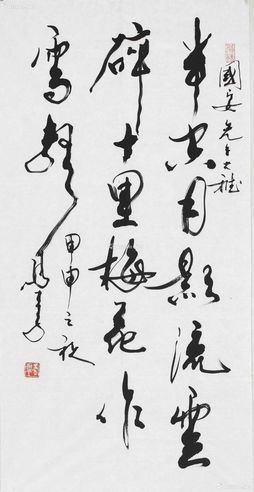 國安先生大雅
半空月影流雲
碎十里梅花作
雪聲
甲申之秋